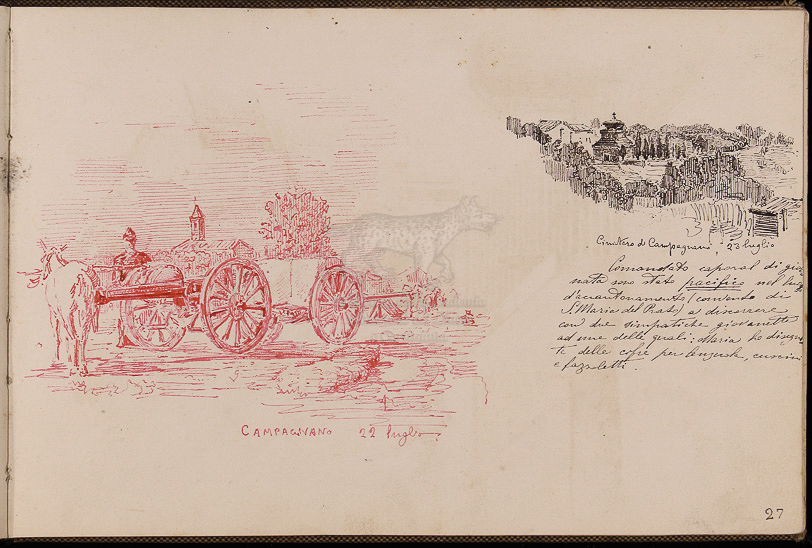 CAMPAGNANO 22 luglio
Cimitero di Campagnano, 23 luglio
Comandato caporal di gior
nata sono stato pacifico nel luogo
d'accantonamento (convento di
S. Maria del Prato) a discorrere
con due simpatiche giovanette
ad una delle quali: Maria ho disegna
te delle cifre per lenzuola, cuscini
e fazzoletti.
27